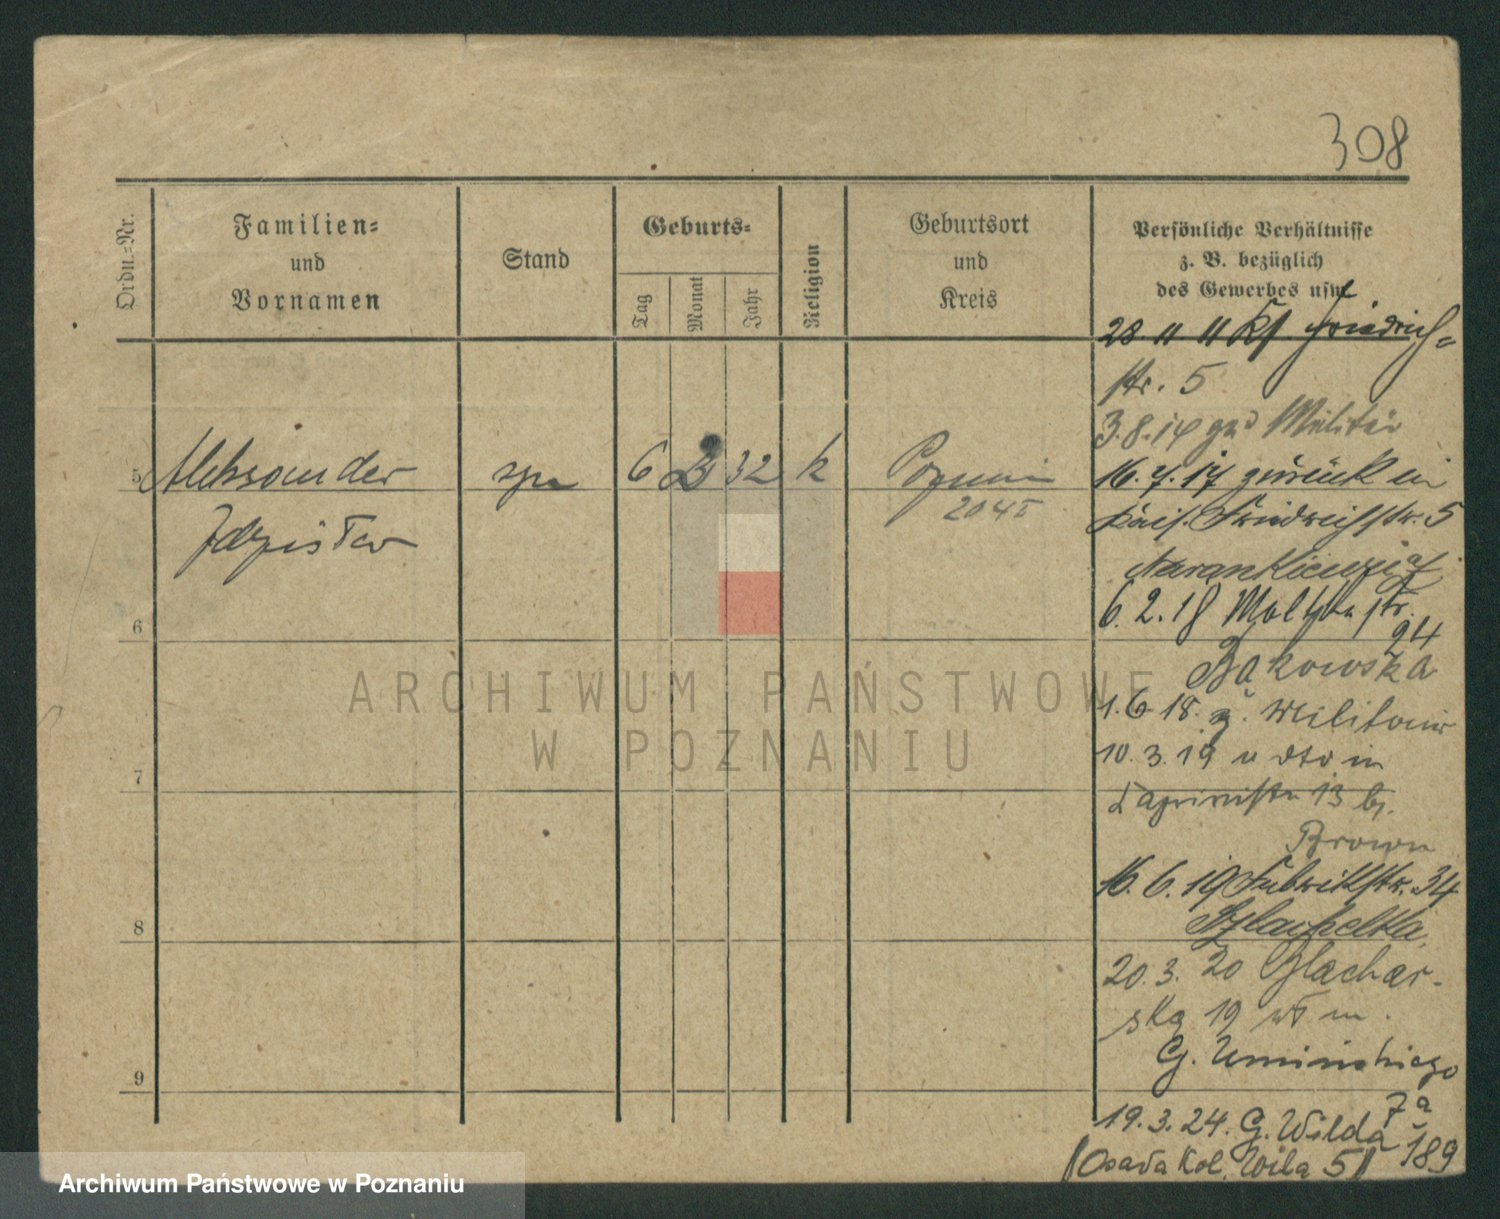 308
Ordn.-Nr.
Familien-
und
Vornamen
Stand
Geburts-
Tag
Monat
Jahr
Religion
Geburtsort
und
Kreis
Persönliche Verhältnisse
z. B. bezüglich
des Gewerbes usw.
28. 11. 11 Kf. Friedrich-
str. 5
3. 8. 14 Militär
5 Aleksander 6 2 32 k
16. 7. 17 zurück in
204 I
Friedrichstr. 5
Zdzisław
6
6. 2. 18 Moltkestr.
24
Bąkowska
1. 6 18. z. Militair
10. 3. 19 v dto in
7
13 bj.
Brown
16. 6. 19 Fabrikstr. 34
Szlachetka
8
20. 3. 20 Blachar-
ska 19 wł m.
G. Umińskiego
9
7a
19. 3. 24. G. Wilda 189
(Osada Kol. Wila 5)
ARCHIWUM PAŃSTWOWE
W POZNANIU
Archiwum Państwowe w Poznaniu